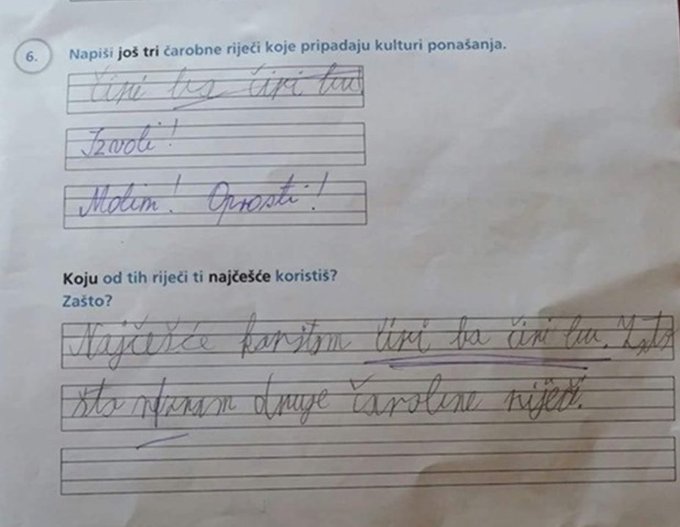 6. Napiši još tri čarobne riječi koje pripadaju kulturi ponašanja.
čiri ba čiri bu
Izvoli!
Molim! Oprosti!
Koju od tih riječi ti najčešće koristiš?
Zašto?
Najčešće koristm čiri ba čiri bu. Zato
što neznam druge čarobne riječi.